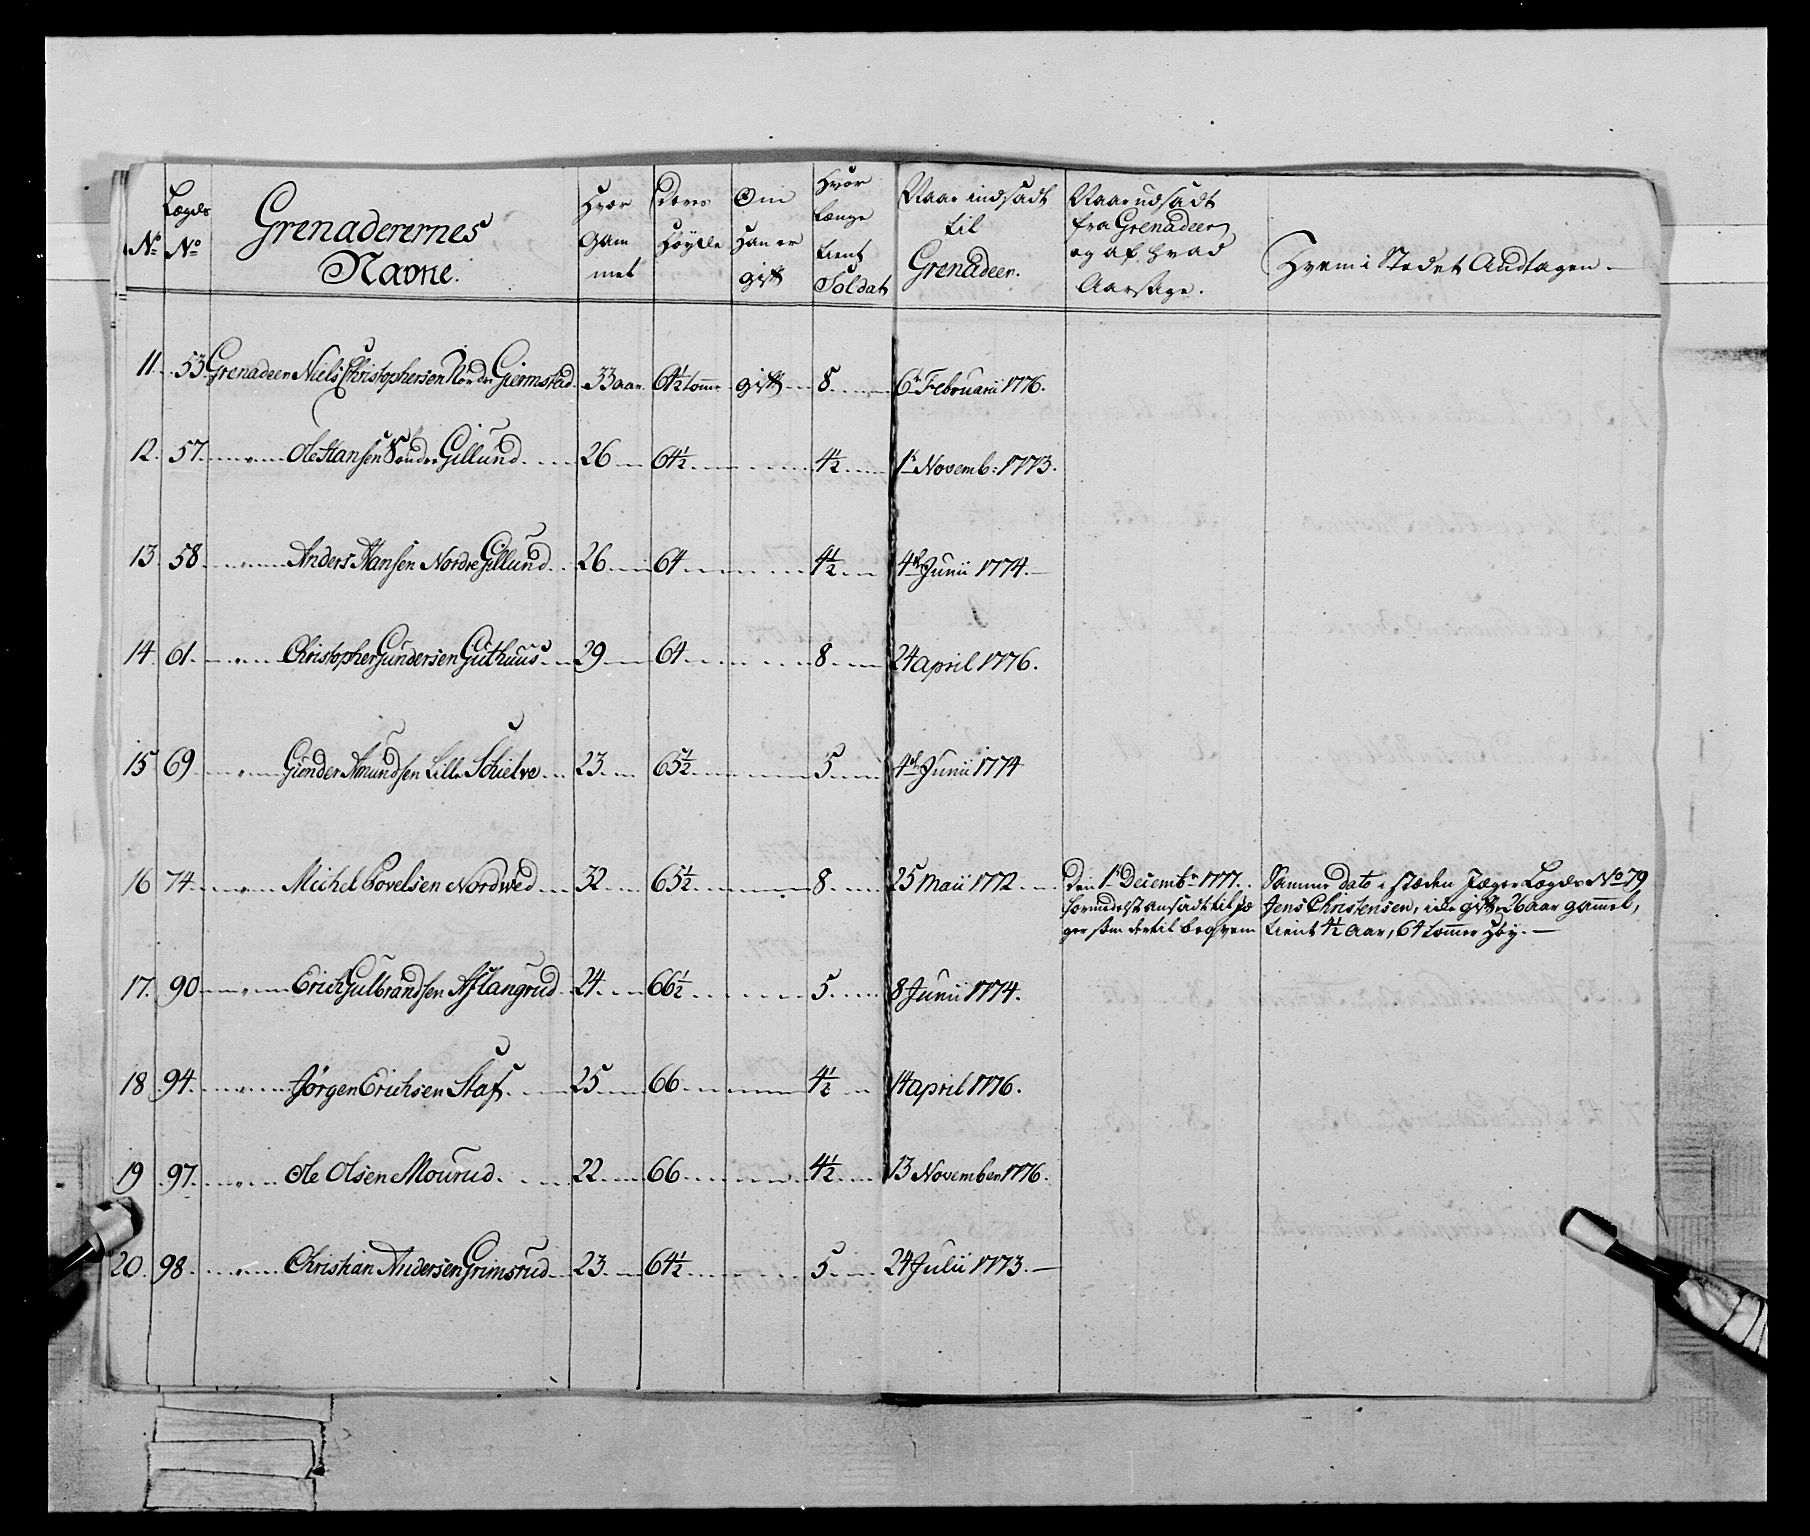 N.o Lægds N.o Grenaderernes Navne. Hvor Gammel Deres Høyde Om Han er gift Hvor længe tient Soldat Naar indsadt til Grenadeer. Naar udsadt fra Grenadeer, og af hvad Aarsage. Hvem i Stedet Andtagen.
11. 53 Grenadeer Niels Christophersen Nordre Giermstad 33 aar 64½ tomr gift 8 6t Februarii 1776.
12. 57. " Ole Hansen Søndre Gillund 26 64½ 4½ 1t Novemb: 1773.
13 58 " Anders Hansen Nordre Gillund 26 64 4½ 4de Junii 1774.
14. 61. " Christopher Gundersen Guthuus 29 64 8 24 april 1776.
15 69 " Gunder Amundsen Lille Schielve 23 65½ 5 4de Junii 1774
16 74 " Michel Povelsen Nordwed 32 65½ 8 25 Maii 1772 Den 1t Decembr 1777. Samme dato i stæden Jæger Lægds No 79
ansadt til Jæ Jens Christensen, icke gift, 26 aar gammel,
ger som dertil beqvem tient 4½ Aar, 64 tommer Høy.
17. 90 " Erich Gulbrandsen Aslangrud 24 66½ 5 8 Junii 1774.
18 94. " Jørgen Erichsen Staf 25 66 4½ 14 april 1776.
19 97. " Ole Olsen Mourud 22 66 4½ 13 November 1776.
20 98 " Christian Andersen Grimsrud 23 64½ 5 24 Julii 1773.